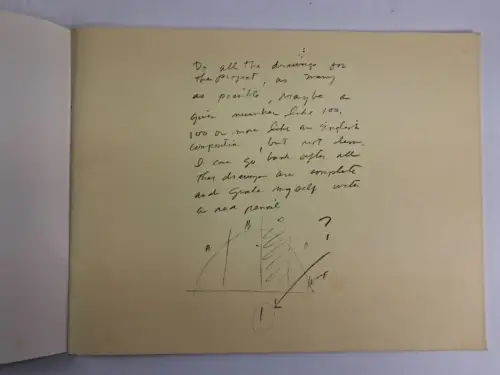 Do all the drawings for
the project, as many
as possible, maybe a
given number like 100,
100 or more like an English
, but not less.
I can go back after all
the drawings are complete
and grade myself with
a red pencil
A B C D F
? !
1